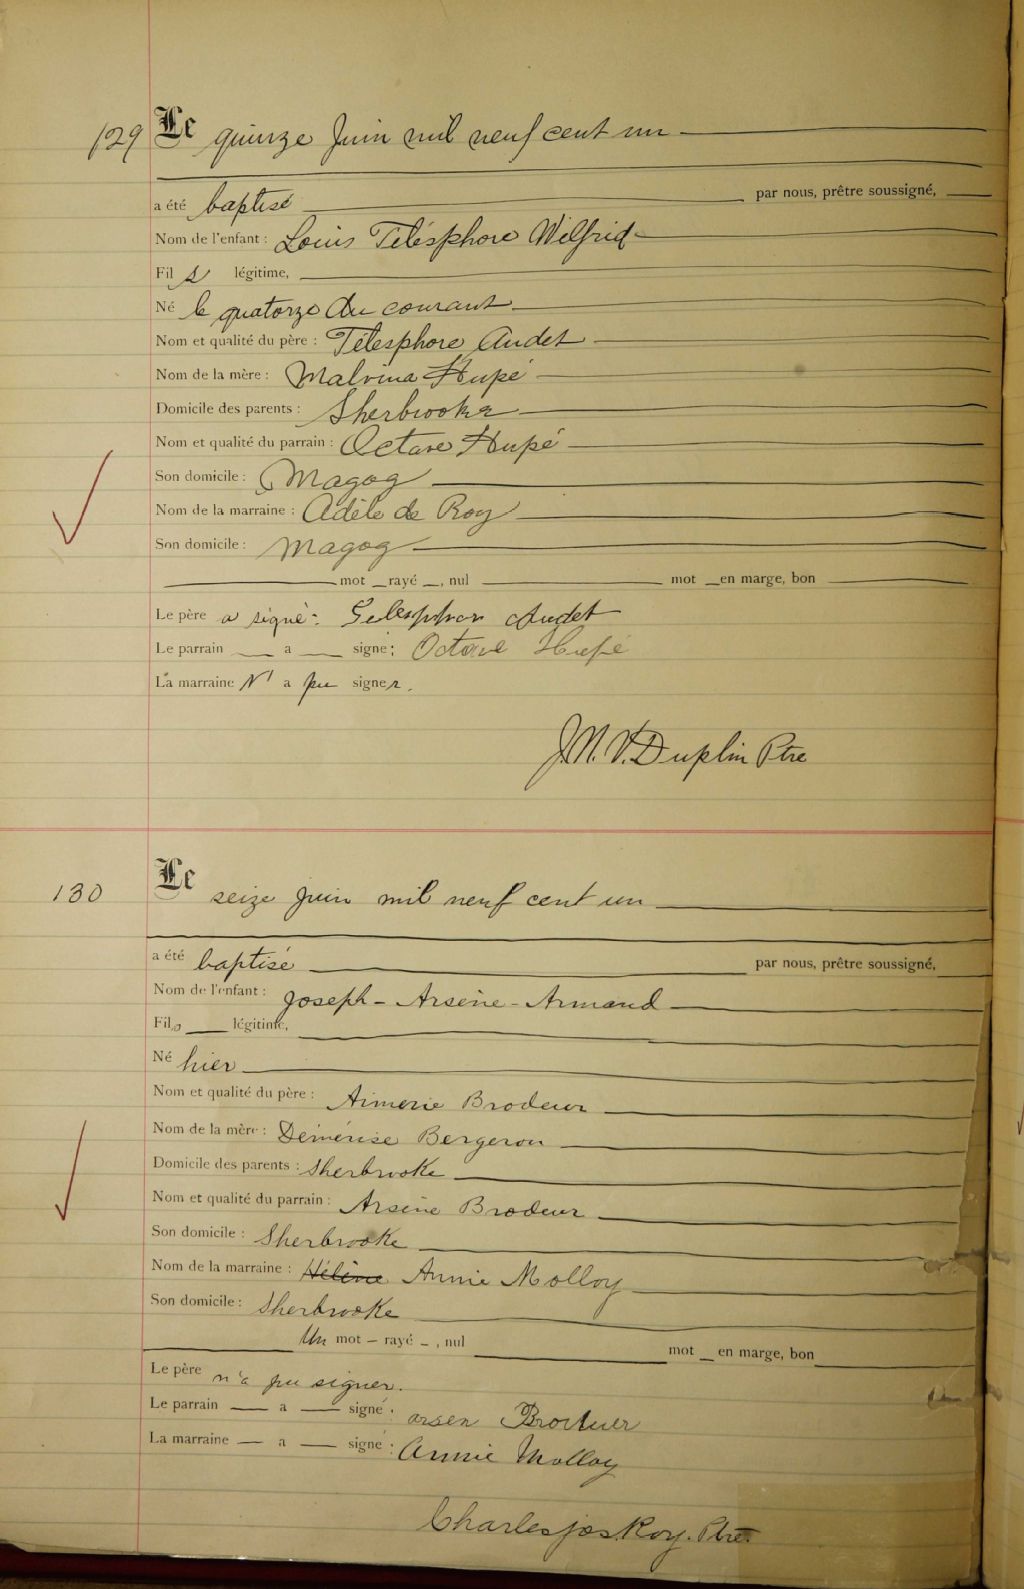 129 Le quinze Juin mil neuf cent un
a été baptisé par nous, prêtre soussigné,
Nom de l'enfant : Louis Télésphore Wilfrid
Fils légitime,
Né le quatorze du courant
Nom et qualité du père : Télesphore Audet
Nom de la mère : Malvina Hupé
Domicile des parents : Sherbrooke
Nom et qualité du parrain : Octave Hupé
Son domicile : Magog
Nom de la marraine : Adèle de Roy
Son domicile : Magog
mot rayé , nul mot en marge, bon
Le père a signé : Telesphor Audet
Le parrain a signé : Octave Hupé
La marraine N' a pu signer.
J.N.V. Duplin Ptre
130 Le seize juin mil neuf cent un
a été baptisé par nous, prêtre soussigné,
Nom de l'enfant : Joseph - Arsène - Armand
Fils légitime,
Né hier
Nom et qualité du père : Aimerie Brodeur
Nom de la mère : Démérise Bergeron
Domicile des parents : Sherbrooke
Nom et qualité du parrain : Arsène Brodeur
Son domicile : Sherbrooke
Nom de la marraine : Hélène Annie Molloy
Son domicile : Sherbrooke
Un mot - rayé - , nul mot en marge, bon
Le père n'a pu signer.
Le parrain a signé : arsen Brodeur
La marraine a signé : Annie Molloy
Charles jos. Roy. Ptre.